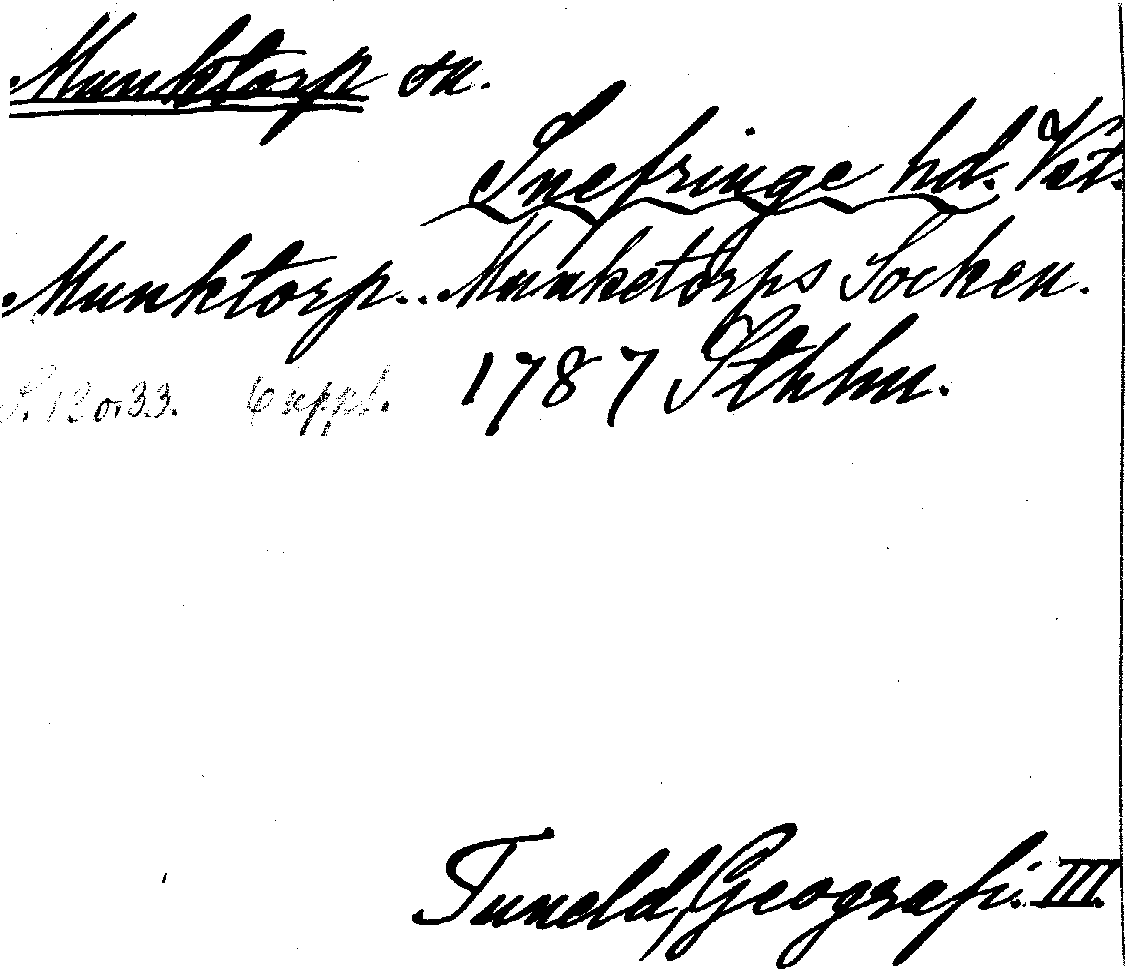 Munktorp sn.
Snefringe hd. Vst.
Munktorp.. Munketorps Socken.
S. 12 o. 33. 6 uppl. 1787 Sthlm.
Tuneld, Geografi. III.